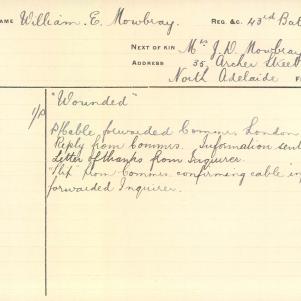 NAME William. E. Mowbray. REG. &C. 43rd Bat
NEXT OF KIN Mrs J. D. Mowbray
ADDRESS 35, Archer Street
North Adelaide
"Wounded"
Cable forwarded Commrs London
Reply from Commrs. Information sent
Letter of thanks from Inquirer.
from Commrs confirming cable in
forwarded Inquirer.